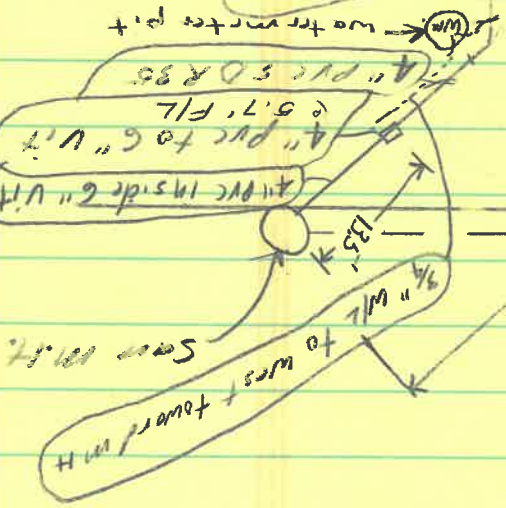 3/4" W/L
to west toward MH
San M.H.
13.5'
4" PVC inside 6" Vit
4" PVC to 6" Vit
@ 5.7' F/L
4" PVC SDR 35
water meter pit
Wm